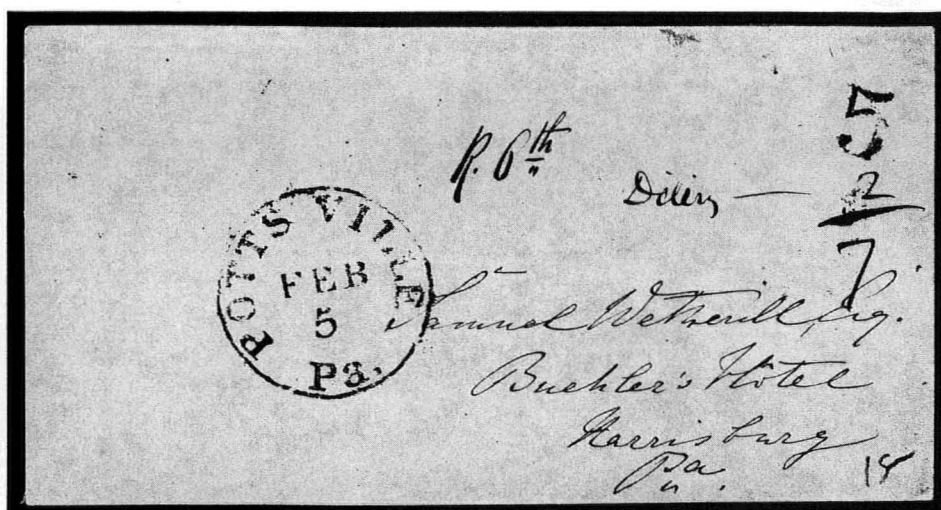 5
R. 6th
Delivy — 2
7
POTTS VILLE
FEB
5
Pa.
Samuel Wetherill, Esq.
Buehler's Hotel
Harrisburg
Pa.
18